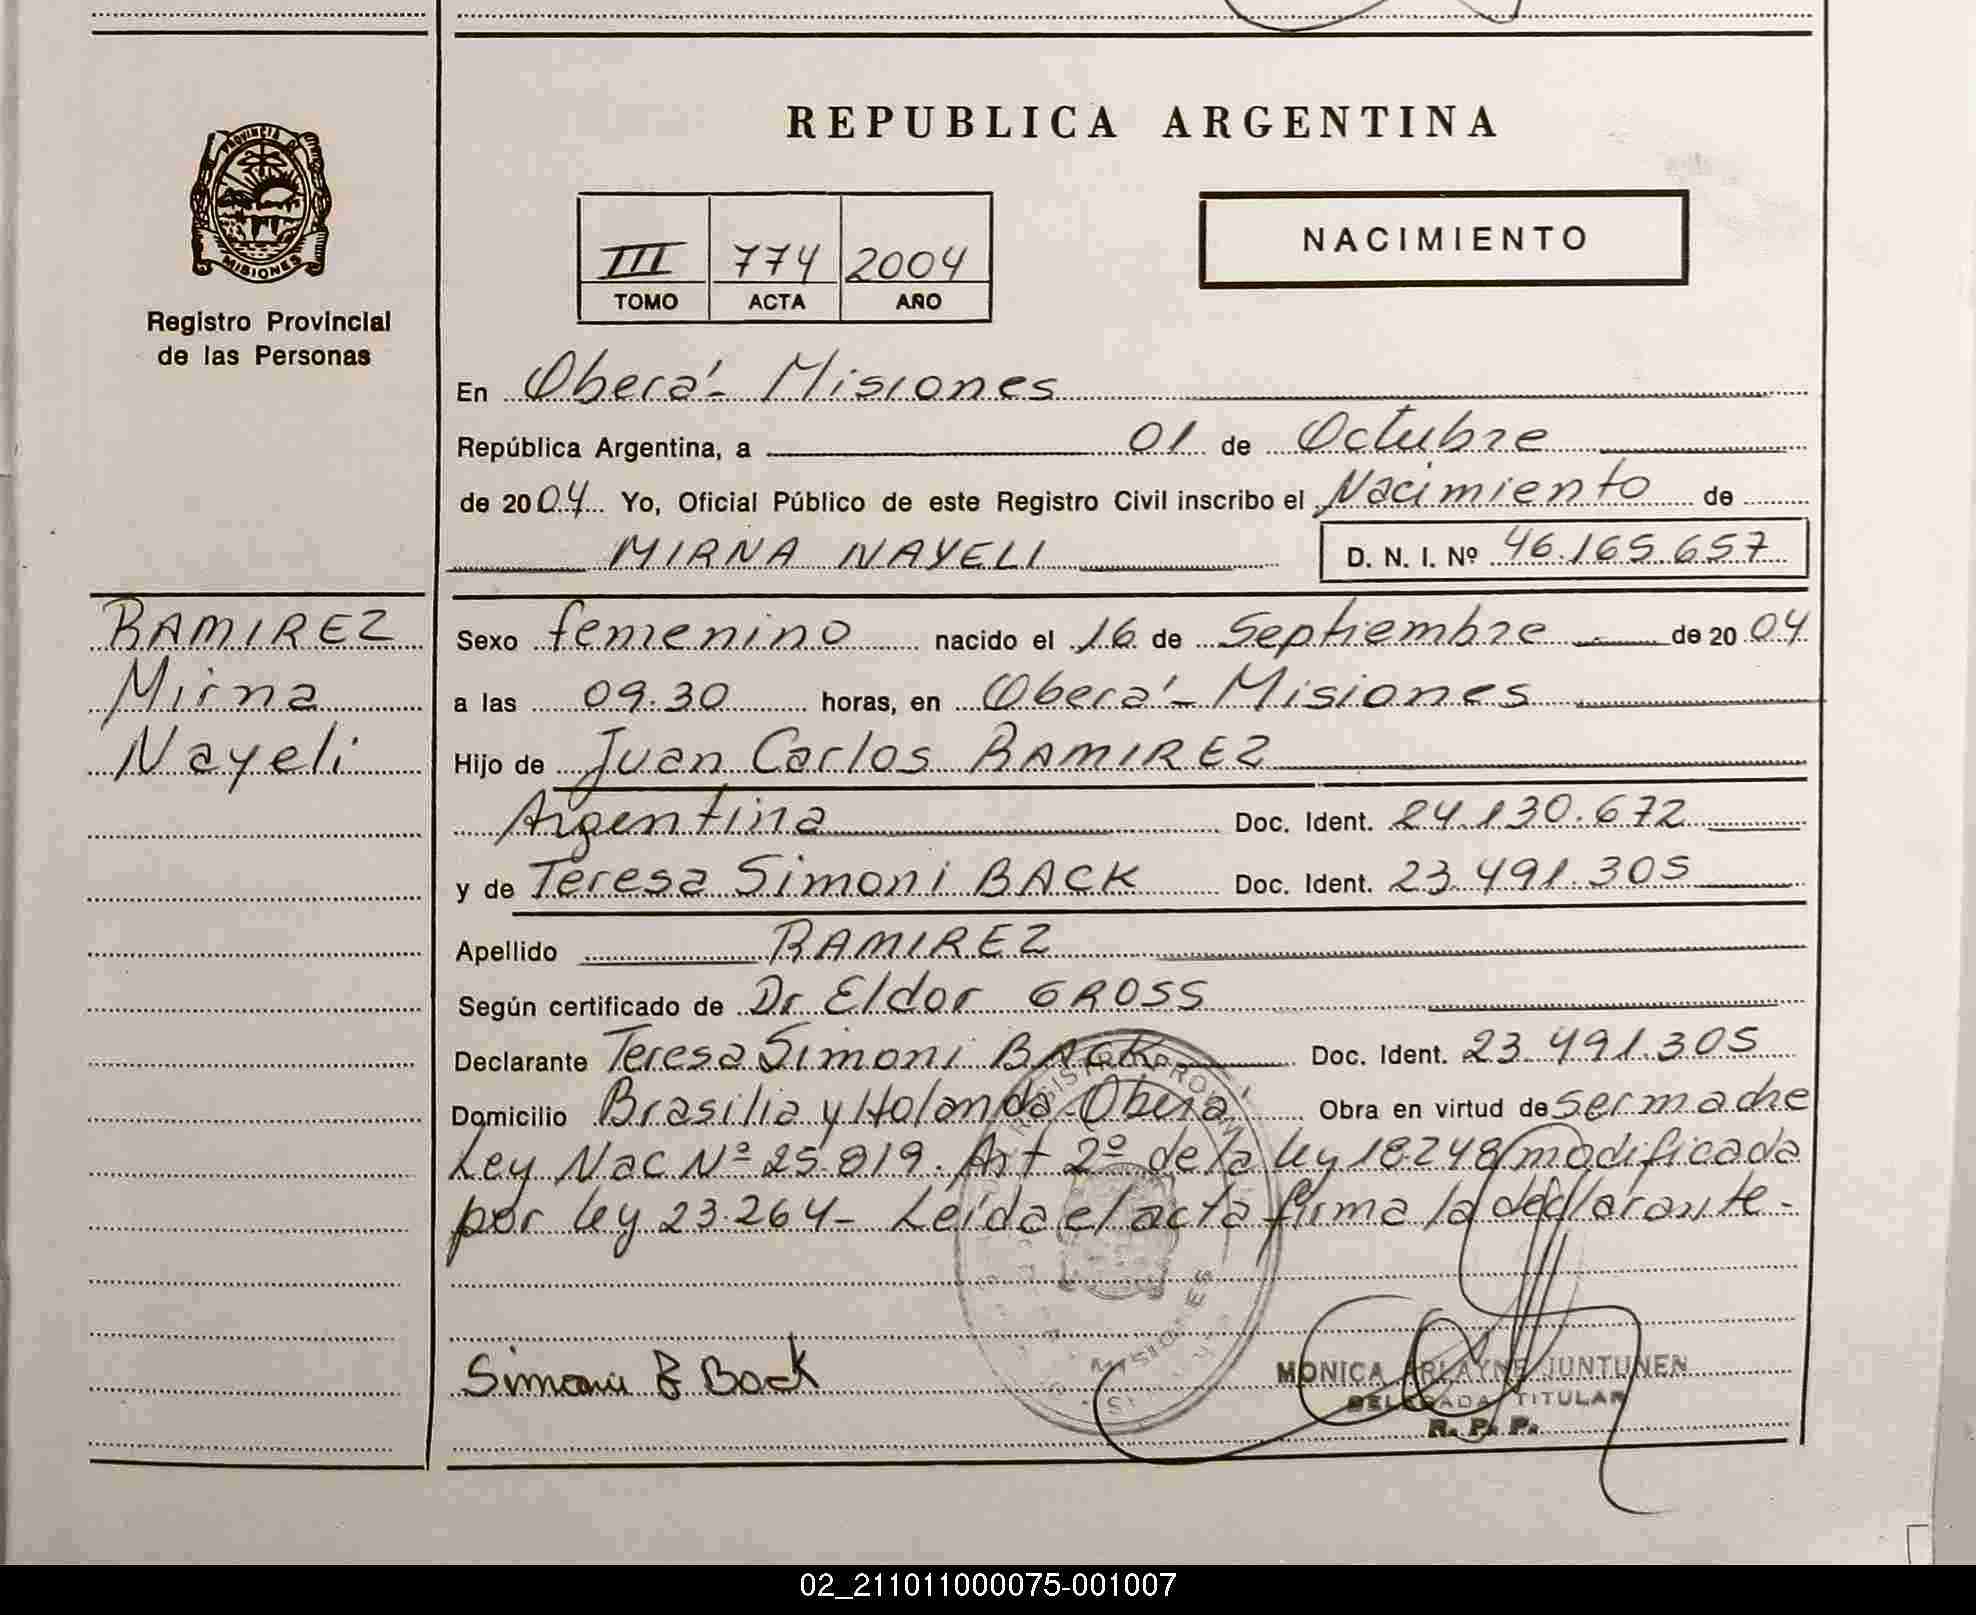 REPUBLICA ARGENTINA
PROVINCIA DE
MISIONES
Registro Provincial
de las Personas
III 774 2004
TOMO ACTA AÑO
NACIMIENTO
En Oberá - Misiones
República Argentina, a 01 de Octubre
de 2004 Yo, Oficial Público de este Registro Civil inscribo el Nacimiento de
MIRNA NAYELI D. N. I. Nº 46.165.657
RAMIREZ
Mirna
Nayeli
Sexo femenino nacido el 16 de Septiembre de 2004
a las 09.30 horas, en Oberá - Misiones
Hijo de Juan Carlos RAMIREZ
Argentina Doc. Ident. 24.130.672
y de Teresa Simoni BACK Doc. Ident. 23.491.305
Apellido RAMIREZ
Según certificado de Dr Eldor GROSS
Declarante Teresa Simoni BACK Doc. Ident. 23.491.305
Domicilio Brasilia y Holanda - Oberá Obra en virtud de ser madre
Ley Nac Nº 25.819. Art 2º de la ley 18.248 modificada
por ley 23.264 - Leída el acta firma la declarante -
REGISTRO PROVIN
MISIONES
Simoni B Back
MONICA ARLAYNE JUNTUNEN
DELEGADA TITULAR
R. P. P.
02_211011000075-001007